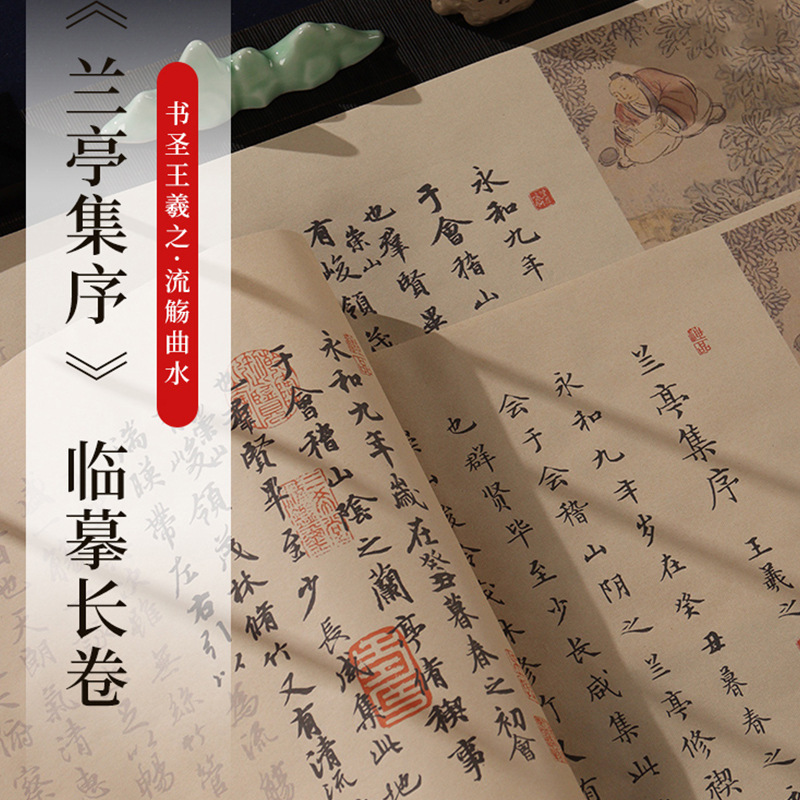 《兰亭集序》 临摹长卷
书圣王羲之·流觞曲水
永和九年
于會稽山
也羣賢畢
有崇山峻領茂
兰亭集序 王羲之
永和九年岁在癸丑暮春之
会于会稽山阴之兰亭修禊
也群贤毕至少长咸集此
崇山峻岭茂林修竹又有
永和九年歲在癸丑暮春之初會
于會稽山陰之蘭亭脩禊事
羣賢畢至少長咸集此地
崇山峻領茂林脩竹又有清流
湍暎帶左右引以為流觴
也天朗氣清惠
俯察